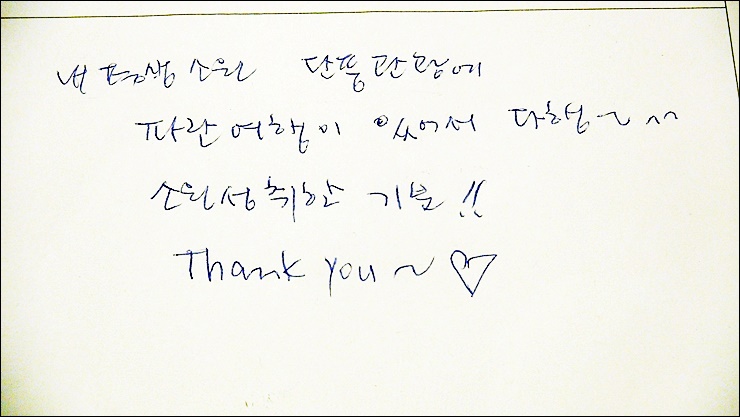 내 평생 소원 단풍관광에
파란여행이 있어서 다행~ ^^
소원성취한 기분!!
Thank you ~ ♡